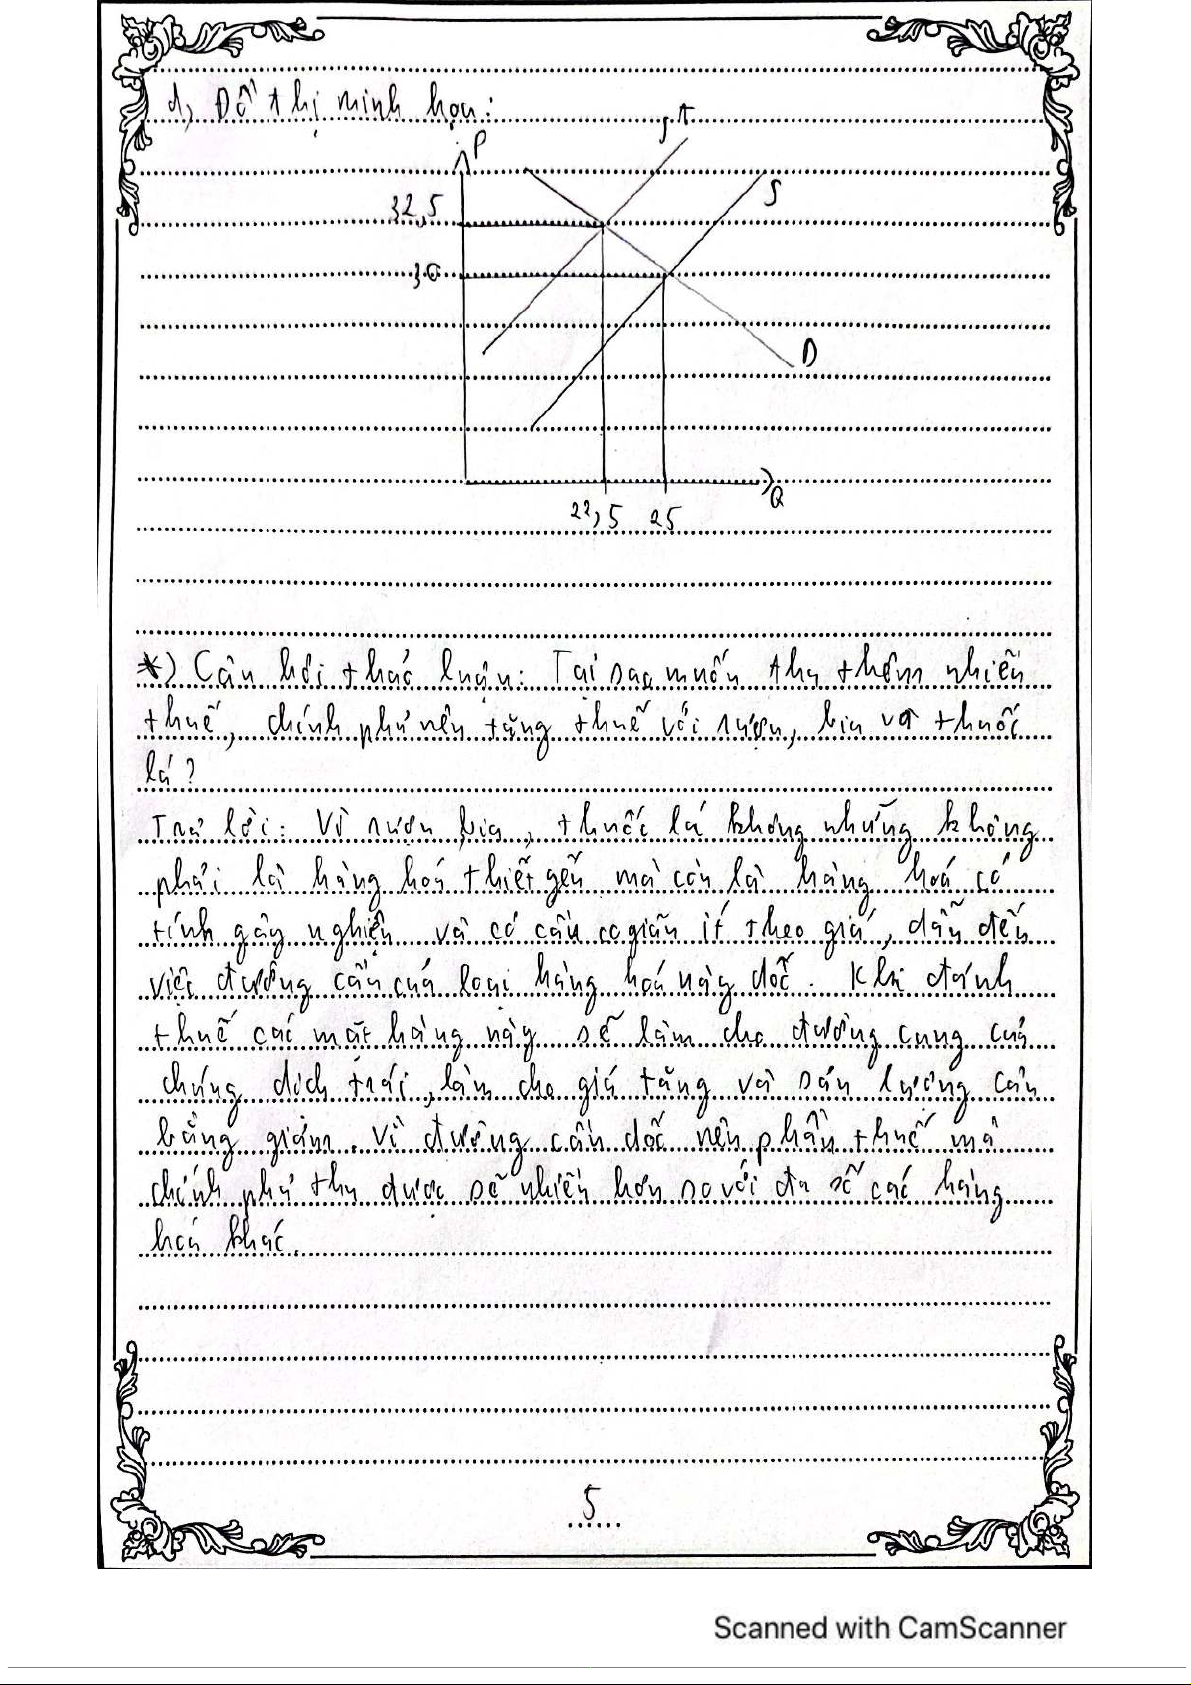 d, Đồ thị minh họa:
P
S t
S
32,5
30
D
Q
22,5 25
*) Câu hỏi thảo luận: Tại sao muốn thu thêm nhiều
thuế, chính phủ nên tăng thuế với rượu, bia và thuốc
lá?
Trả lời: Vì rượu bia, thuốc lá không những không
phải là hàng hoá thiết yếu mà còn là hàng hoá có
tính gây nghiện và có cầu co giãn ít theo giá, dẫn đến
việc đường cầu của loại hàng hoá này dốc. Khi đánh
thuế các mặt hàng này sẽ làm cho đường cung của
chúng dịch trái, làm cho giá tăng và sản lượng cân
bằng giảm. Vì đường cầu dốc nên phần thuế mà
chính phủ thu được sẽ nhiều hơn so với đa số các hàng
hoá khác.
5
Scanned with CamScanner